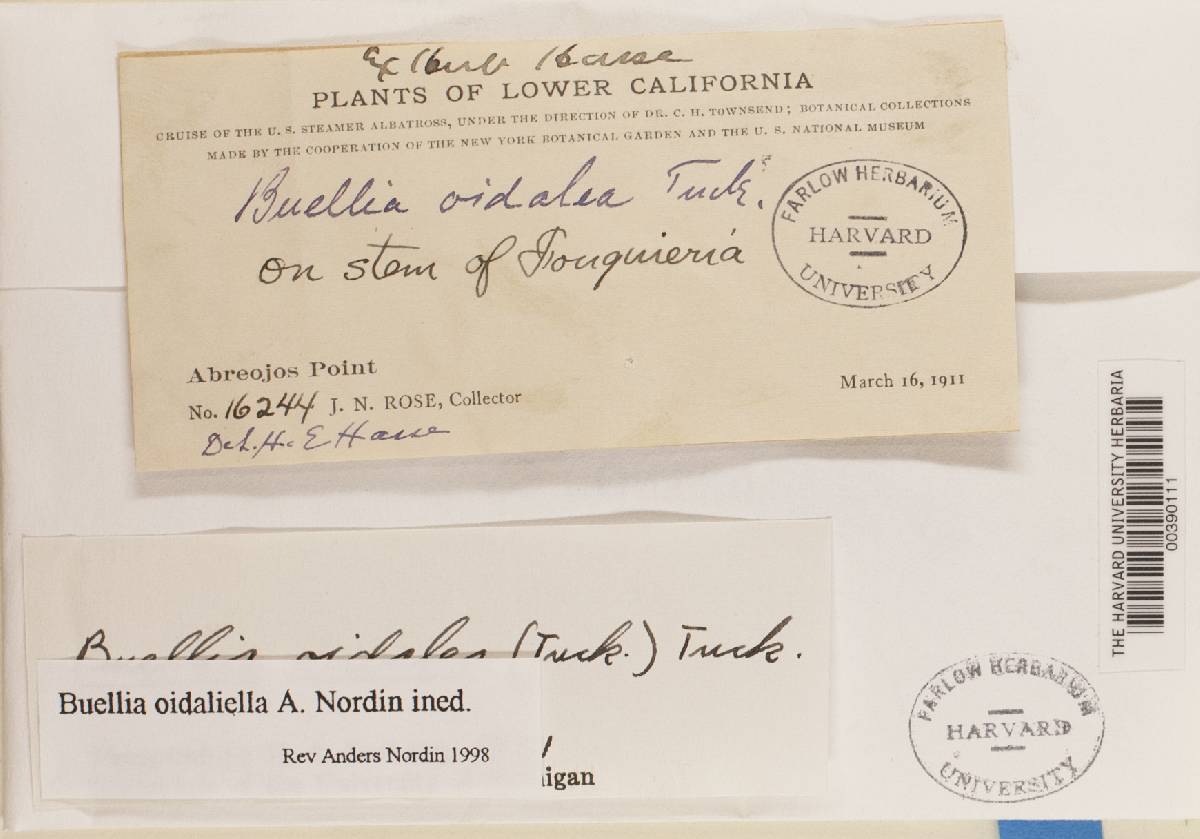 Ex Herb Hasse
PLANTS OF LOWER CALIFORNIA
CRUISE OF THE U. S. STEAMER ALBATROSS, UNDER THE DIRECTION OF DR. C. H. TOWNSEND; BOTANICAL COLLECTIONS
MADE BY THE COOPERATION OF THE NEW YORK BOTANICAL GARDEN AND THE U. S. NATIONAL MUSEUM
Buellia oidalea Tuck.
on stem of Fouquieria
FARLOW HERBARIUM
HARVARD
UNIVERSITY
Abreojos Point
March 16, 1911
No. 16244 J. N. ROSE, Collector
Det. H. E Hasse
THE HARVARD UNIVERSITY HERBARIA
00390111
Buellia oidalea (Tuck.) Tuck.
Buellia oidaliella A. Nordin ined.
Rev Anders Nordin 1998
igan
FARLOW HERBARIUM
HARVARD
UNIVERSITY